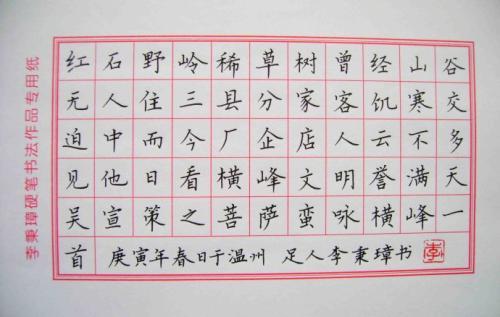 红石野岭稀草树曾经山谷
无人住三县分家客饥寒交
迫中而今厂企店人云不多
见他日看横峰文明誉满天
吴宣策之菩萨蛮咏横峰一
首 庚寅年春日于温州 足人李秉璋书 李
李秉璋硬笔书法作品专用纸